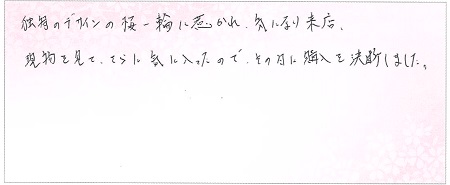 独特のデザインの桜一輪に惹かれ、気になり来店。
現物を見て、さらに気に入ったので、その日に購入を決断しました。